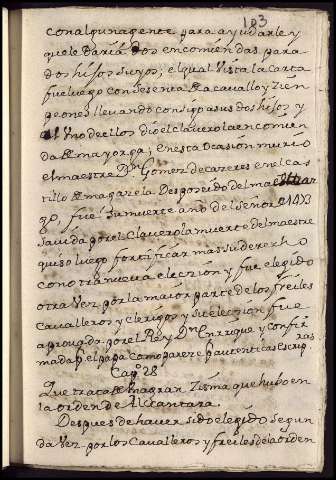 103
con alguna gente para ayudarle y
que le daria dos encomiendas para
dos hijos suyos; el qual Vista la Carta
fue luego con sesenta de a cavallo y Zien
peones llevando consigo a sus dos hijos y
al Uno de ellos dio el Clavero la encomien
da de mayorga; en esta Ocasion murio
el maestre Dⁿ Gomez de cazeres en el Cas
tillo de magazela Desposeido del maestraz
go, fue su muerte año del Señor 1473
Savida por el Clavero la muerte del maestre
quiso luego fortificar mas su derecho
con otra nueva eleczion y fue elegido
otra Vez por la maior parte de los freiles
Cavalleros y Clerigos y su eleczion fue
aprovada por el Rey Dⁿ Enrrique y confir
mada p. el papa Como pareze p. autenticas Escrip.ras
Cap.º 28
Que trata de Una gran Zisma que hubo en
la orden de Alcantara.
Despues de haver sido elegido Segun
da Vez por los Cavalleros y freiles de la orden